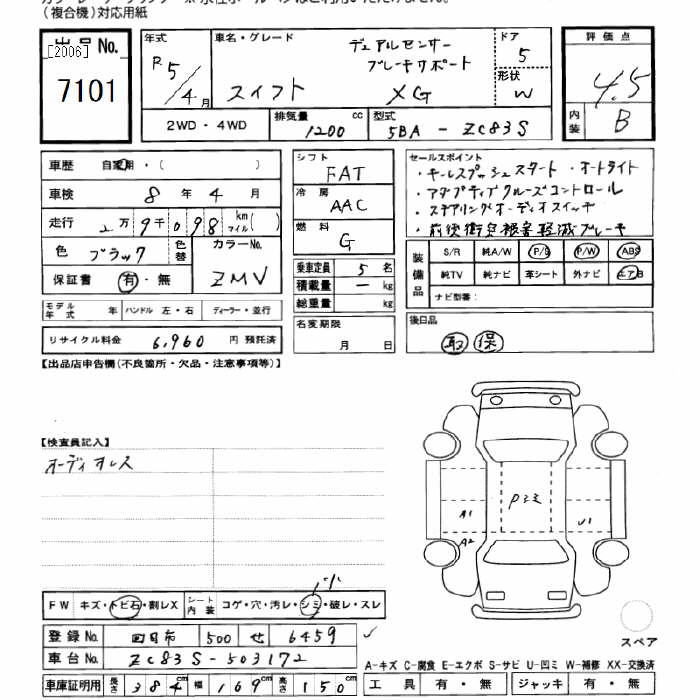 (複合機)対応用紙
出品No.
[2006]
7101
年式
R5/4月
車名・グレード
デュアルセンサー
ブレーキサポート
スイフト XG
ドア
5
形状
W
評価点
4.5
内装
B
2WD・4WD
排気量 1200 cc
型式 5BA-ZC83S
車歴 自家用・( )
車検 8年4月
走行 2万9千098km マイル( )
色 ブラック
色替
カラーNo.
ZMV
保証書 有・無
モデル年式 年
ハンドル 左・右
ディーラー・並行
リサイクル料金 6,960 円 預託済
シフト
FAT
冷房
AAC
燃料
G
乗車定員 5名
積載量 ー kg
総重量 kg
名変期限
月 日
セールスポイント
・キーレスプッシュスタート・オートライト
・アダプティブクルーズコントロール
・ステアリングオーディオスイッチ
・前後衝突被害軽減ブレーキ
装備品
S/R 純A/W P/S P/W ABS
純TV 純ナビ 革シート 外ナビ エアB
ナビ型番:
後日品
取 保
【出品店申告欄(不良箇所・欠品・注意事項等)】
【検査員記入】
オーディオレス
Pミミ
A1
A2
U1
FW キズ・トビ石・割レX
シート内装 コゲ・穴・汚レ・シミ・破レ・スレ
小
登録No. 四日市 500 せ 6459
車台No. ZC83S-503172
車庫証明用 長さ 384cm 幅 169cm 高さ 150cm
スペア
A-キズ C-腐食 E-エクボ S-サビ U-凹ミ W-補修 XX-交換済
工具 有・無 ジャッキ 有・無